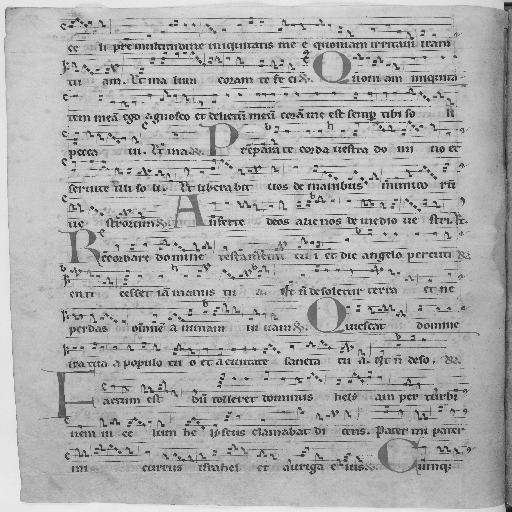 ce li pre multitudine iniquitatis me e quoniam irritaui iram
tu am. Et ma lum coram te fe ci. Quoniam iniquita
tem meā ego agnosco et delictū meū corā me est semp tibi so li
pecca ui. Et ma. Preparate corda uestra do mi no et
seruite illi so li. Et liberabit uos de manibus inimico rū
ue strorum. Auferte deos alienos de medio ue stri. Et.
Recordare domine testamenti tu i et dic angelo percuti
enti cesset iā manus tu a. Ut nō desoletur terra et ne
perdas omnē a nimam ui uam. Quiescat domine
ira tua a populo tu o et a ciuitate sancta tu a. Ut nō deso.
Factum est dū tolleret dominus heli am per turbi
nem in ce lum he lyseus clamabat di cens. Pater mi pater
mi currus israhel et auriga e ius. Cumq;